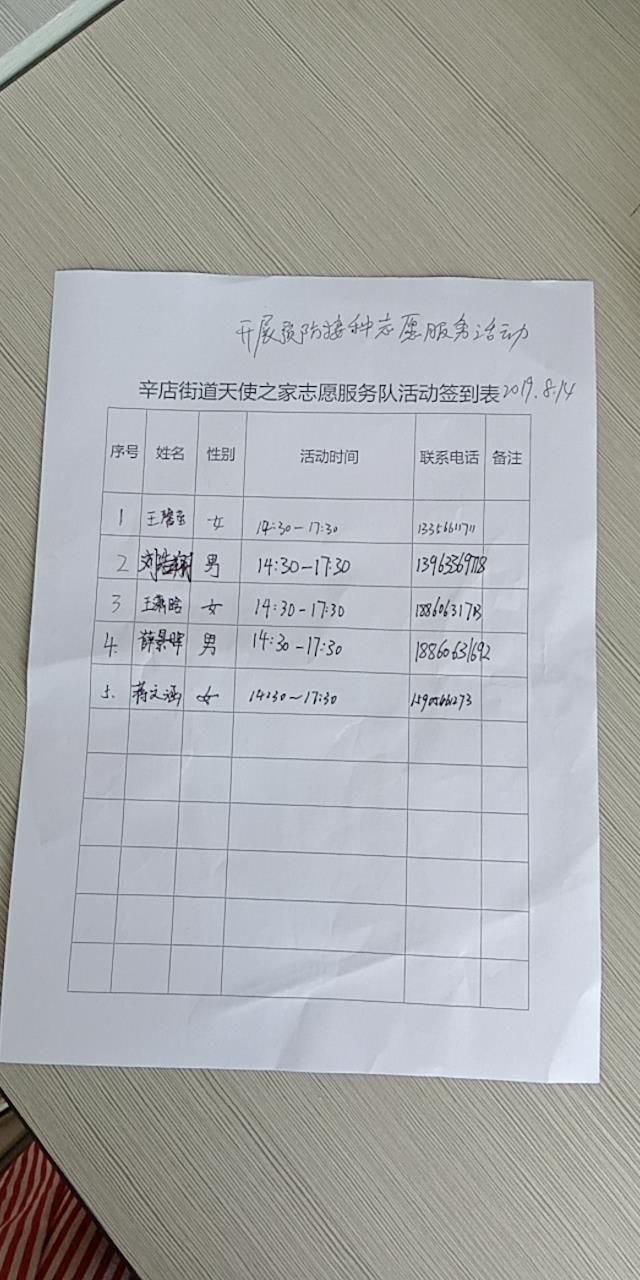 开展预防接种志愿服务活动
辛店街道天使之家志愿服务队活动签到表 2019.8.14
序号 姓名 性别 活动时间 联系电话 备注
1 王 女 14:30-17:30 13356611711
2 刘浩翔 男 14:30-17:30
3 王 女 14:30-17:30
4. 薛景晖 男 14:30-17:30 18860631692
5. 蒋文涵 女 14:30~17:30